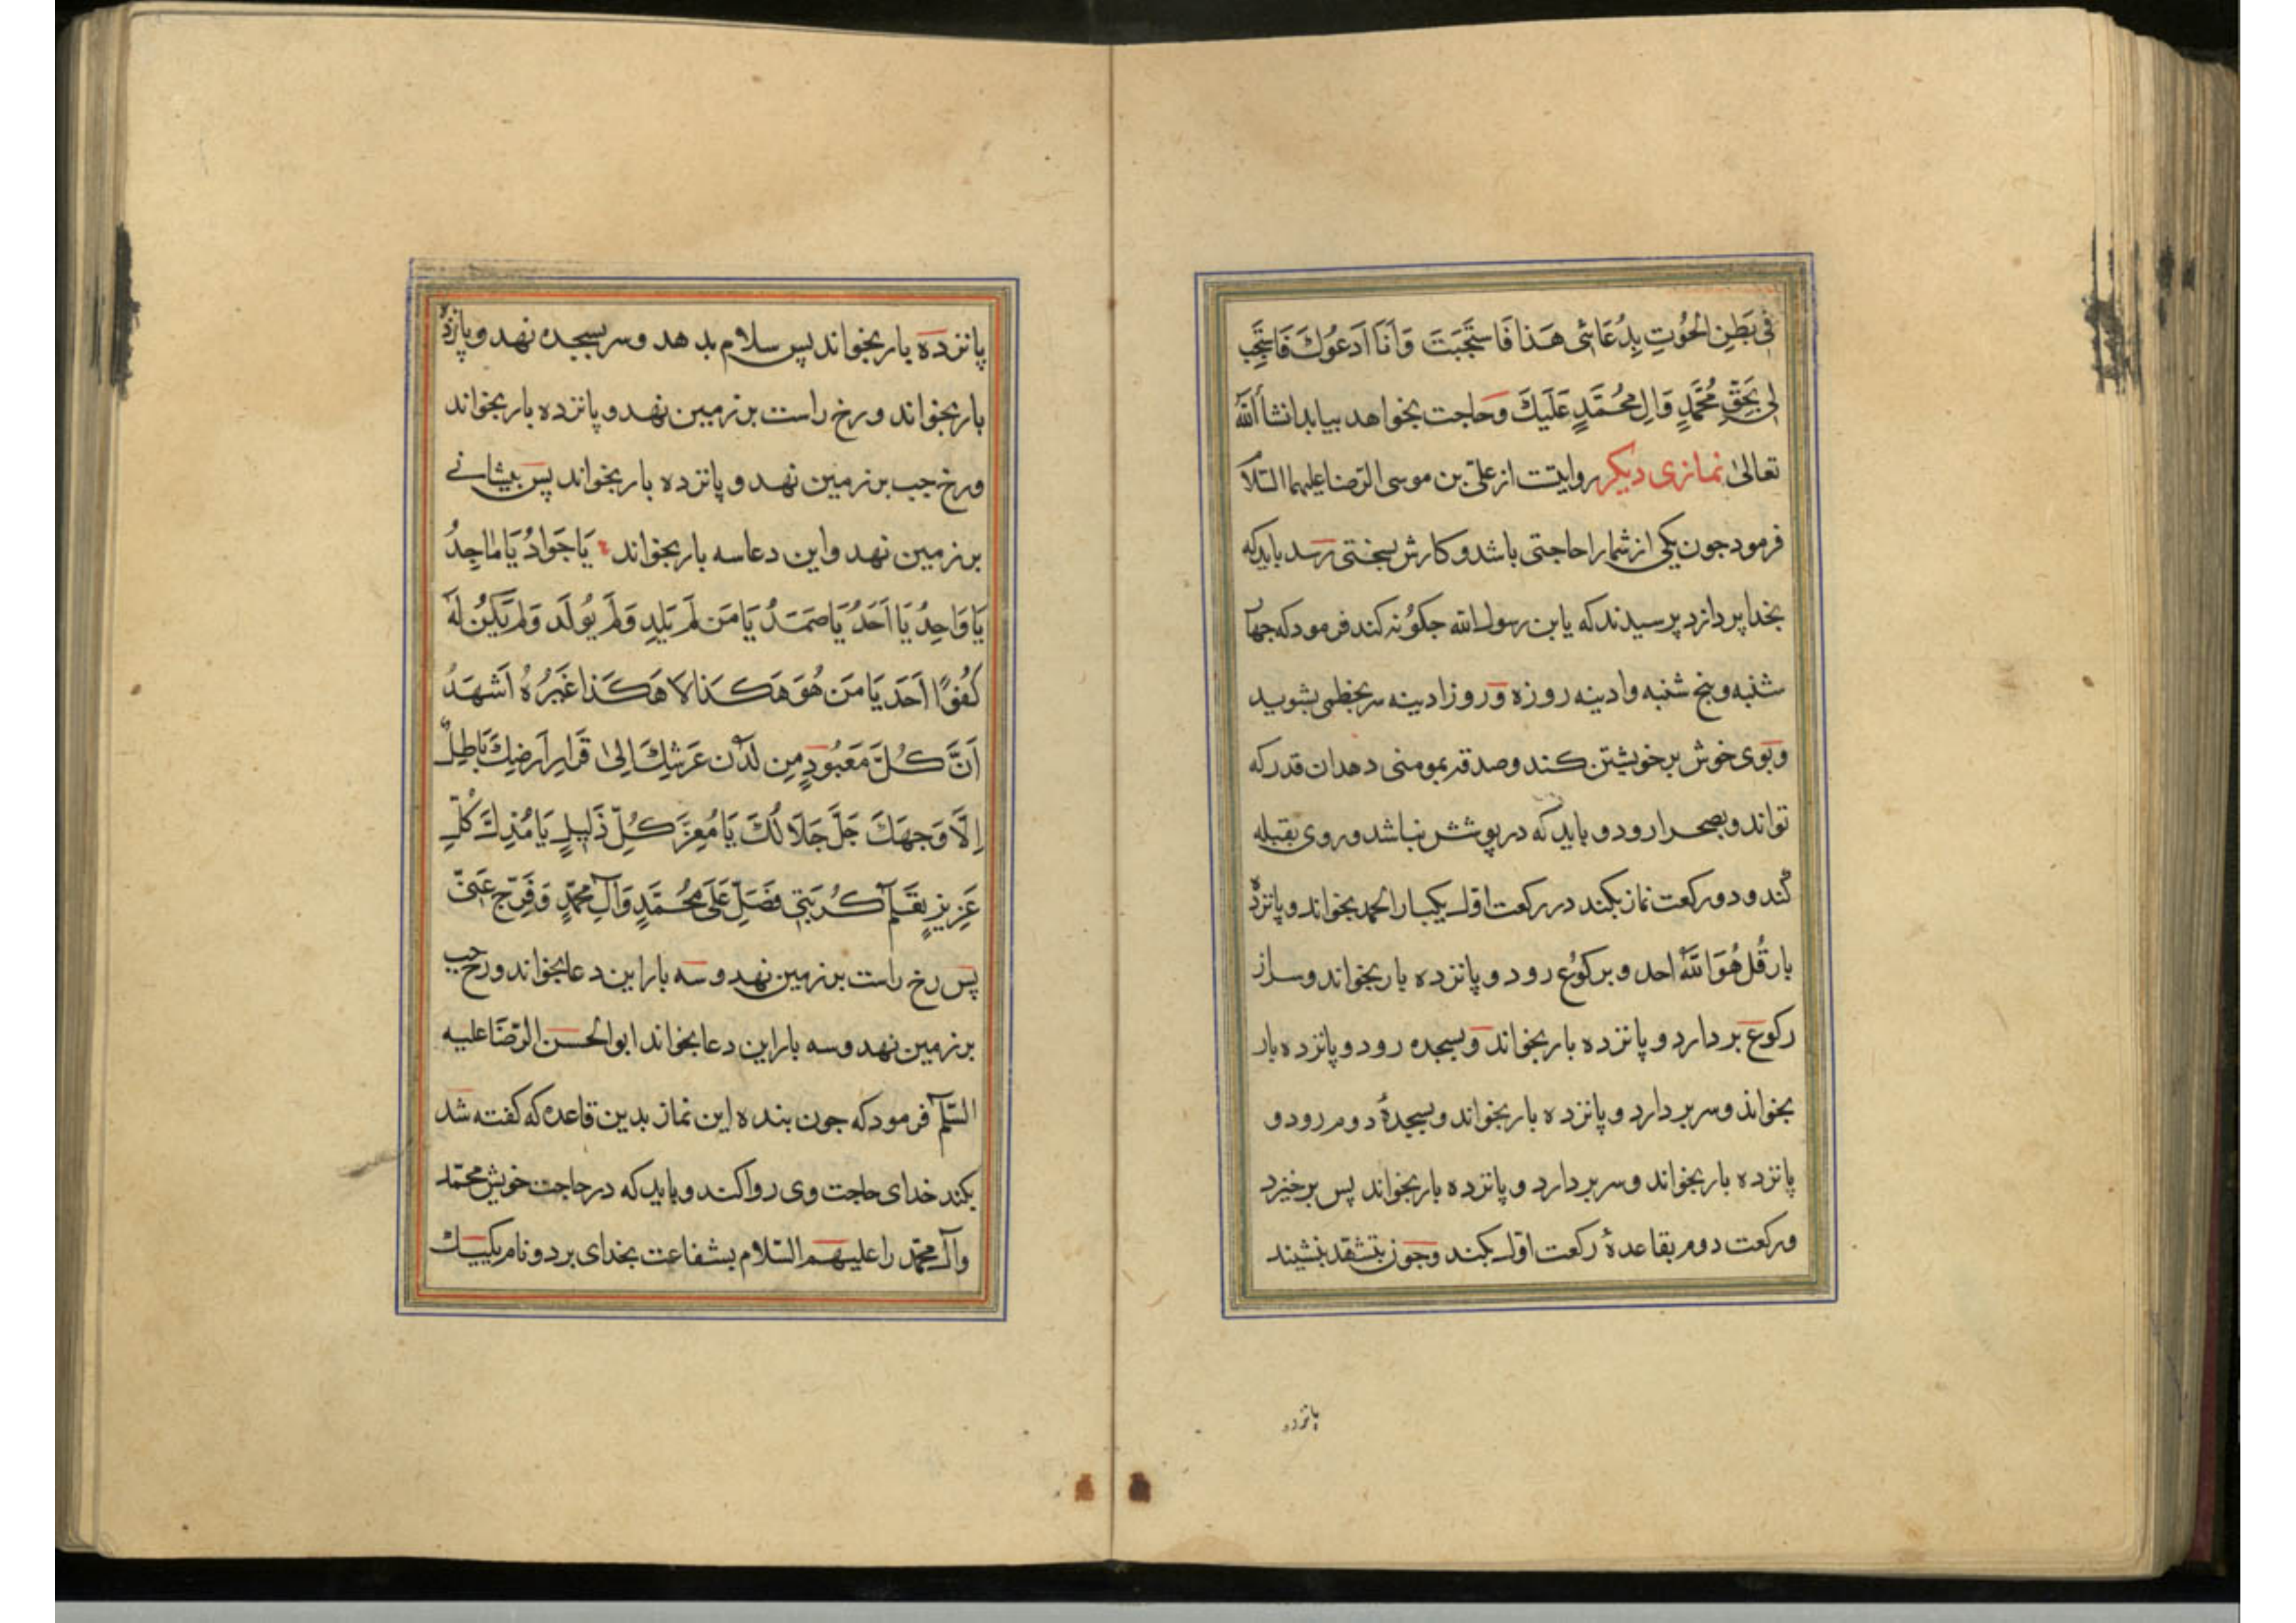 فِی بَطنِ الحُوتِ بِدُعَائی هَذا فَاستَجَبتَ وَاَنَا اَدعُوكَ فَاستَجِب
لِی بِحَقِّ مُحَمَّدٍ وَالِ مُحَمَّدٍ عَلَیكَ وحاجت بخواهد بیابد انشاألله
تعالیٰ نمازی دیکر روایتست از علیّ بن موسی الرّضا علیهما السّلاَ
فرمود جون یکی از شما را حاجتی باشد و کارش بسختی رسد باید که
بخدا پردازد پرسیدند که یا بن رسول الله جکوُنه کند فرمود که جهاَ
شنبه و پنج شنبه و ادینه روزه و روز ادینه سر بخطمی بشوید
و بوی خوش بر خویشتن کند و صدقه بمومنی دهد ان قدر که
تواند و بصحرا رود و باید که در پوشش نباشد و روی بقبله
کند و دو رکعت نماز بکند در رکعت اوّل یکبار الحمد بخواند و پانزدهْ
بار قُل هُوَ اللّهُ احد و برکوُع رود و پانزده بار بخواند و سر از
رکوع بردارد و پانزده بار بخواند و بسجده رود و پانزده بار
بخواند و سر بردارد و پانزده بار بخواند و بسجدهٔ دوم رود و
پانزده بار بخواند و سر بردارد و پانزده بار بخواند پس برخیزد
و رکعت دوم بقاعدهٔ رکعت اوّل بکند و جون بتشهّد بنشیند
پانزده
پانزده بار بخواند پس سلام بدهد و سر بسجده نهد و پانزدهْ
بار بخواند و رخ راست بر زمین نهد و پانزده بار بخواند
و رخ جب بر زمین نهد و پانزده بار بخواند پس پیشانے
بر زمین نهد و این دعا سه بار بخواند یَا جَوَادُ یَا مٰاجِدُ
یَا وَاحِدُ یَا اَحَدُ یَا صَمَدُ یَا مَن لَم یَلِد وَلَم یُولَد وَلَم یَکُن لَهُ
کُفُوًا اَحَد یَا مَن هُوَ هَکَذا لا هَکَذا غَیرُهُ اَشهَدُ
اَنَّ کُلَّ مَعبُودٍ مِن لَدُن عَرشِكَ اِلیٰ قَرارِ اَرضِكَ بَاطِلٌ
اِلَّا وَجهَكَ جَلَّ جَلَالُكَ یَا مُعِزَّ کُلِّ ذَلِیلٍ یَا مُذِلَّ کُلِّ
عَزِیزٍ تعلم کُربَتِی فَصَلِّ عَلَی مُحَمَّدٍ وَآلِ مُحَمَّدٍ وَفَرِّج عَنّی
پس رخ راست بر زمین نهد و سه بار این دعا بخواند و رخ جب
بر زمین نهد و سه بار این دعا بخواند ابو الحسن الرّضَا علیه
السّلم فرمود که جون بنده این نماز بدین قاعده که کفته شد
بکند خدای حاجت وی روا کند و باید که در حاجت خویش محمّد
وآل محمّد را علیهم السّلام بشفاعت بخدای برد و نام یکییك